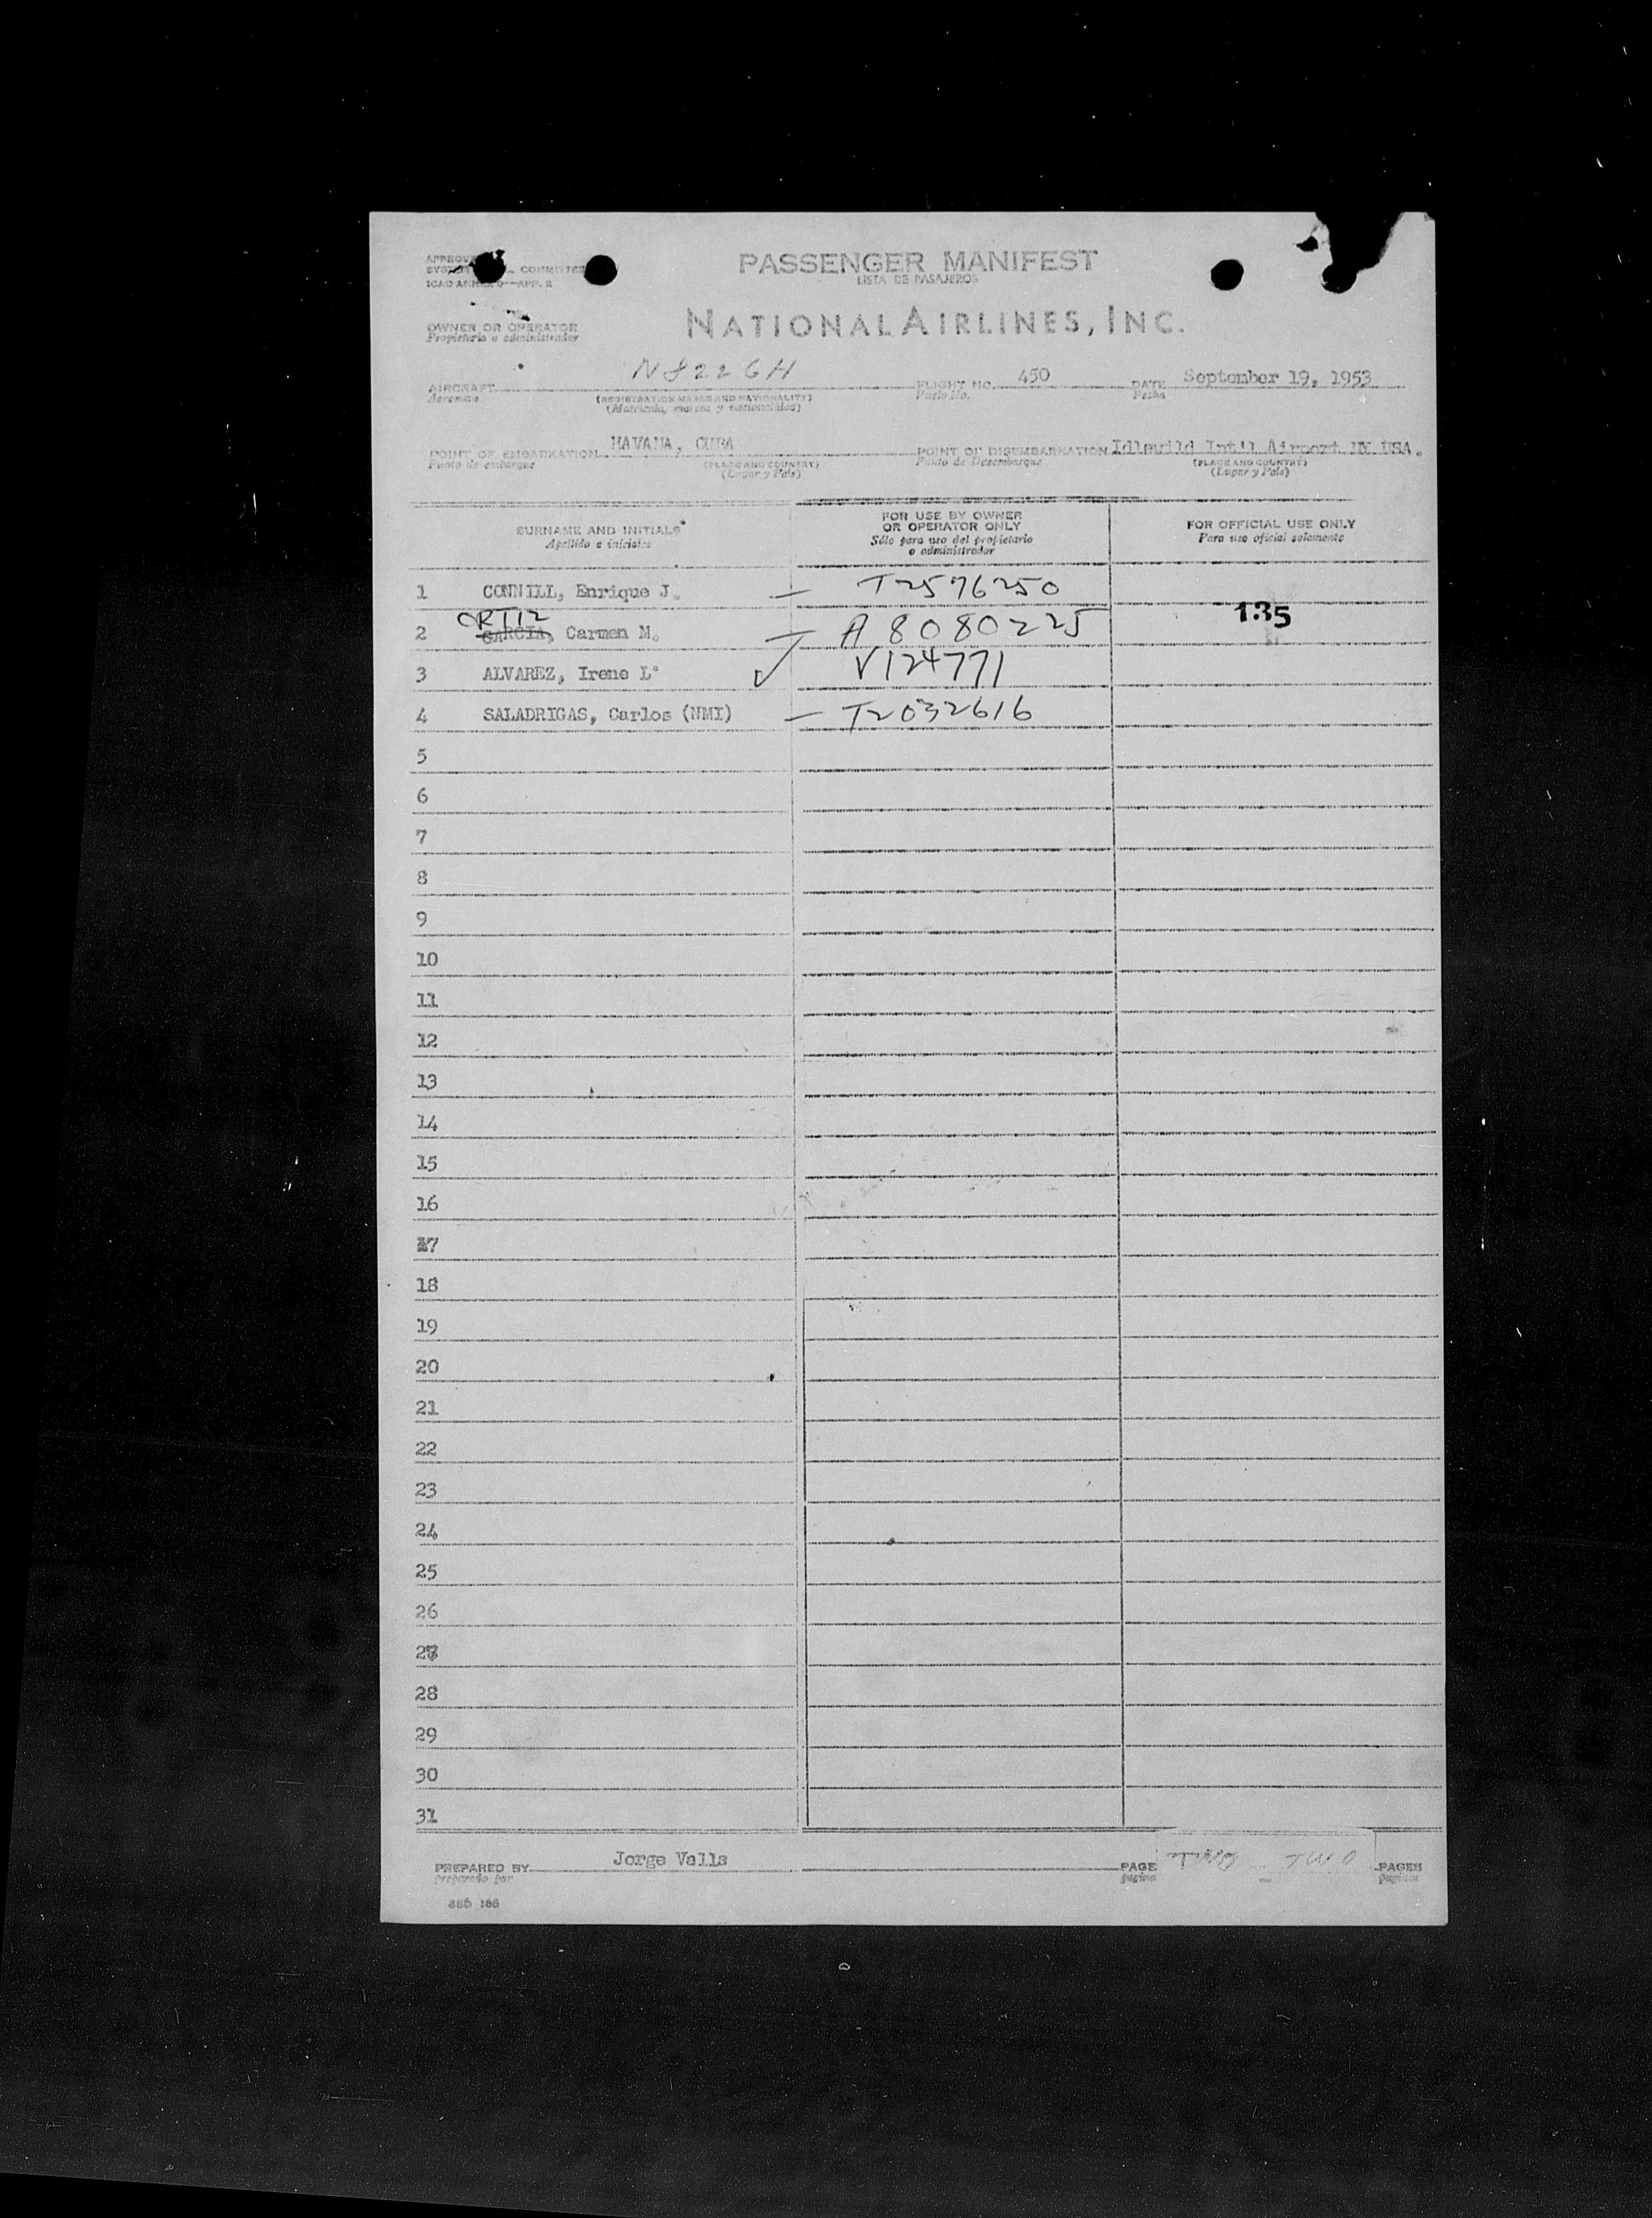 APPROVE
COMMITTEE
PASSENGER MANIFEST
LISTA DE PASAJEROS
NATIONAL AIRLINES, INC.
OWNER OR OPERATOR
Propietario o administrador
AIRCRAFT N8226H FLIGHT NO. 450 DATE September 19, 1953
Aeronave (REGISTRATION MARKS AND NATIONALITY) Vuelo No. Fecha
(Matrícula, marcas y nacionalidad)
POINT OF EMBARKATION HAVANA, CUBA POINT OF DISEMBARKATION Idlewild Int'l Airport NY USA.
Punto de embarque (PLACE AND COUNTRY) Punto de Desembarque (PLACE AND COUNTRY)
(Lugar y País) (Lugar y País)
SURNAME AND INITIALS
Apellido e iniciales
FOR USE BY OWNER
OR OPERATOR ONLY
Sólo para uso del propietario
o administrador
FOR OFFICIAL USE ONLY
Para uso oficial solamente
1 CONNILL, Enrique J. — T2576250
ORTIZ
2 GARCIA, Carmen M. — A 8080225 135
3 ALVAREZ, Irene L. ✓ V124771
4 SALADRIGAS, Carlos (NMI) — T2032616
5
6
7
8
9
10
11
12
13
14
15
16
17
18
19
20
21
22
23
24
25
26
27
28
29
30
31
PREPARED BY Jorge Valls PAGE TWO TWO PAGES
preparado por página páginas